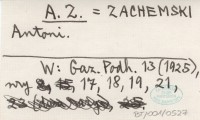 A. Z. = ZACHEMSKI
Antoni.
W: Gaz. Podh. 13 (1925),
nry 17, 18, 19, 21,
BJ/001/0527